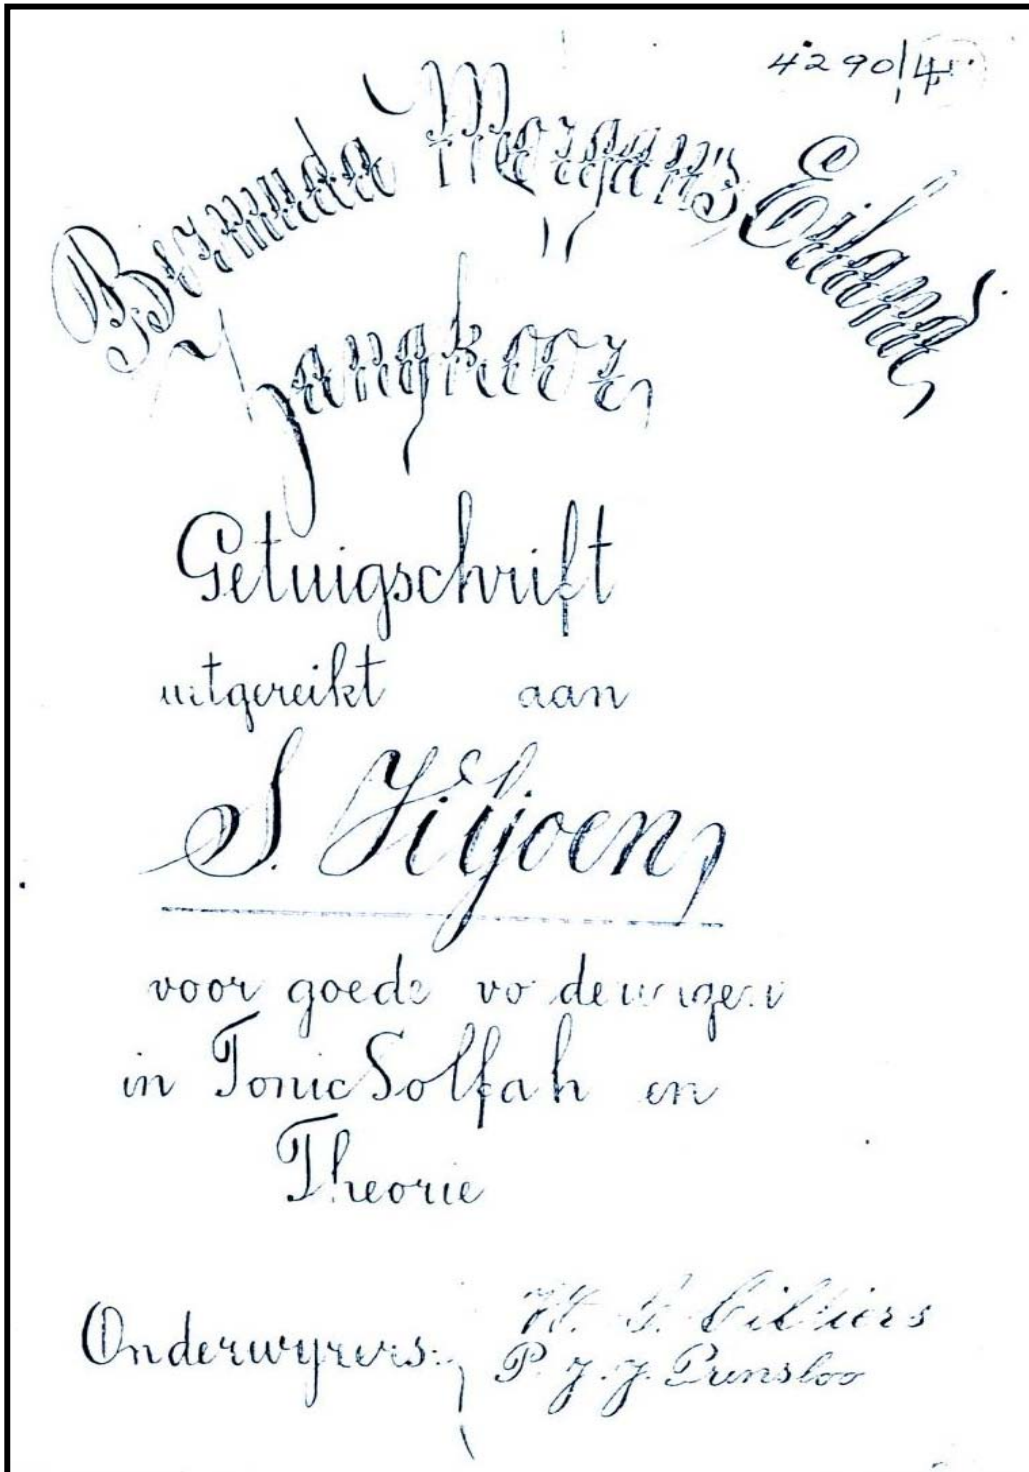 4290/4
Bermuda Morgan's Eiland
Zangkoor
Getuigschrift
uitgereikt aan
S. Viljoen
voor goede vorderingen
in Tonic Solfah en
Theorie
Onderwyzers: Cilliers
P. J. J. Prinsloo